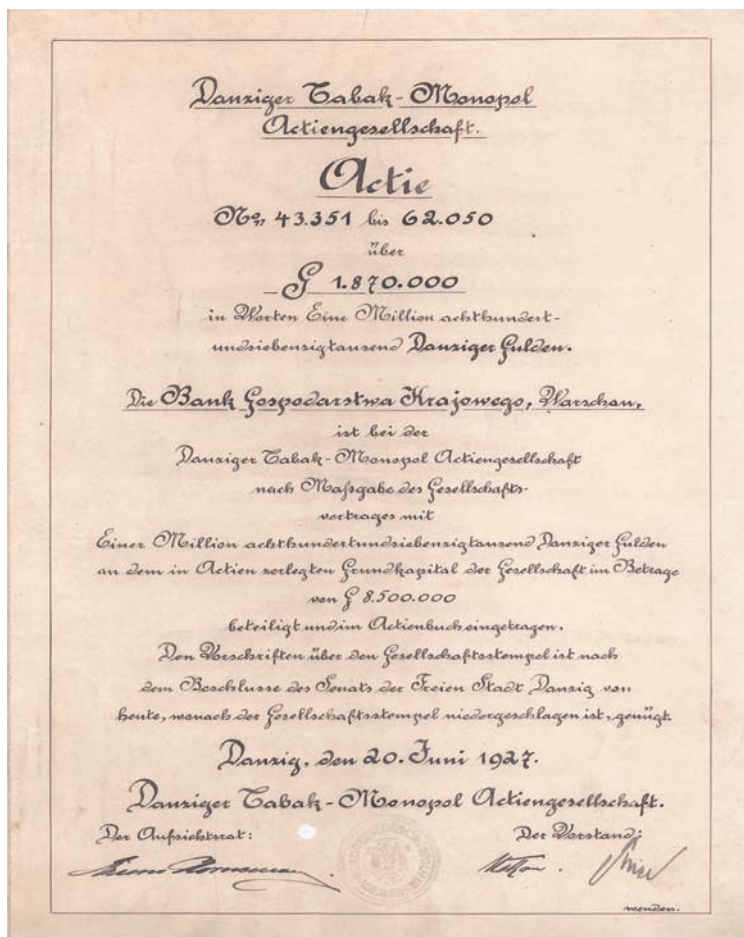 Danziger Tabak-Monopol
Actiengesellschaft.
Actie
No„ 43.351 bis 62.050
über
G 1.870.000
in Worten Eine Million achthundert-
undsiebenzigtausend Danziger Gulden.
Die Bank Gospodarstwa Krajowego, Warschau,
ist bei der
Danziger Tabak-Monopol Actiengesellschaft
nach Maßgabe des Gesellschafts-
vertrages mit
Einer Million achthundertundsiebenzigtausend Danziger Gulden
an dem in Actien zerlegten Grundkapital der Gesellschaft im Betrage
von G 8.500.000
beteiligt und im Actienbuch eingetragen.
Den Vorschriften über den Gesellschaftsstempel ist nach
dem Beschlusse des Senats der Freien Stadt Danzig von
heute, wonach der Gesellschaftsstempel niedergeschlagen ist, genügt.
Danzig, den 20. Juni 1927.
Danziger Tabak-Monopol Actiengesellschaft.
Der Aufsichtsrat: Der Vorstand:
wenden.